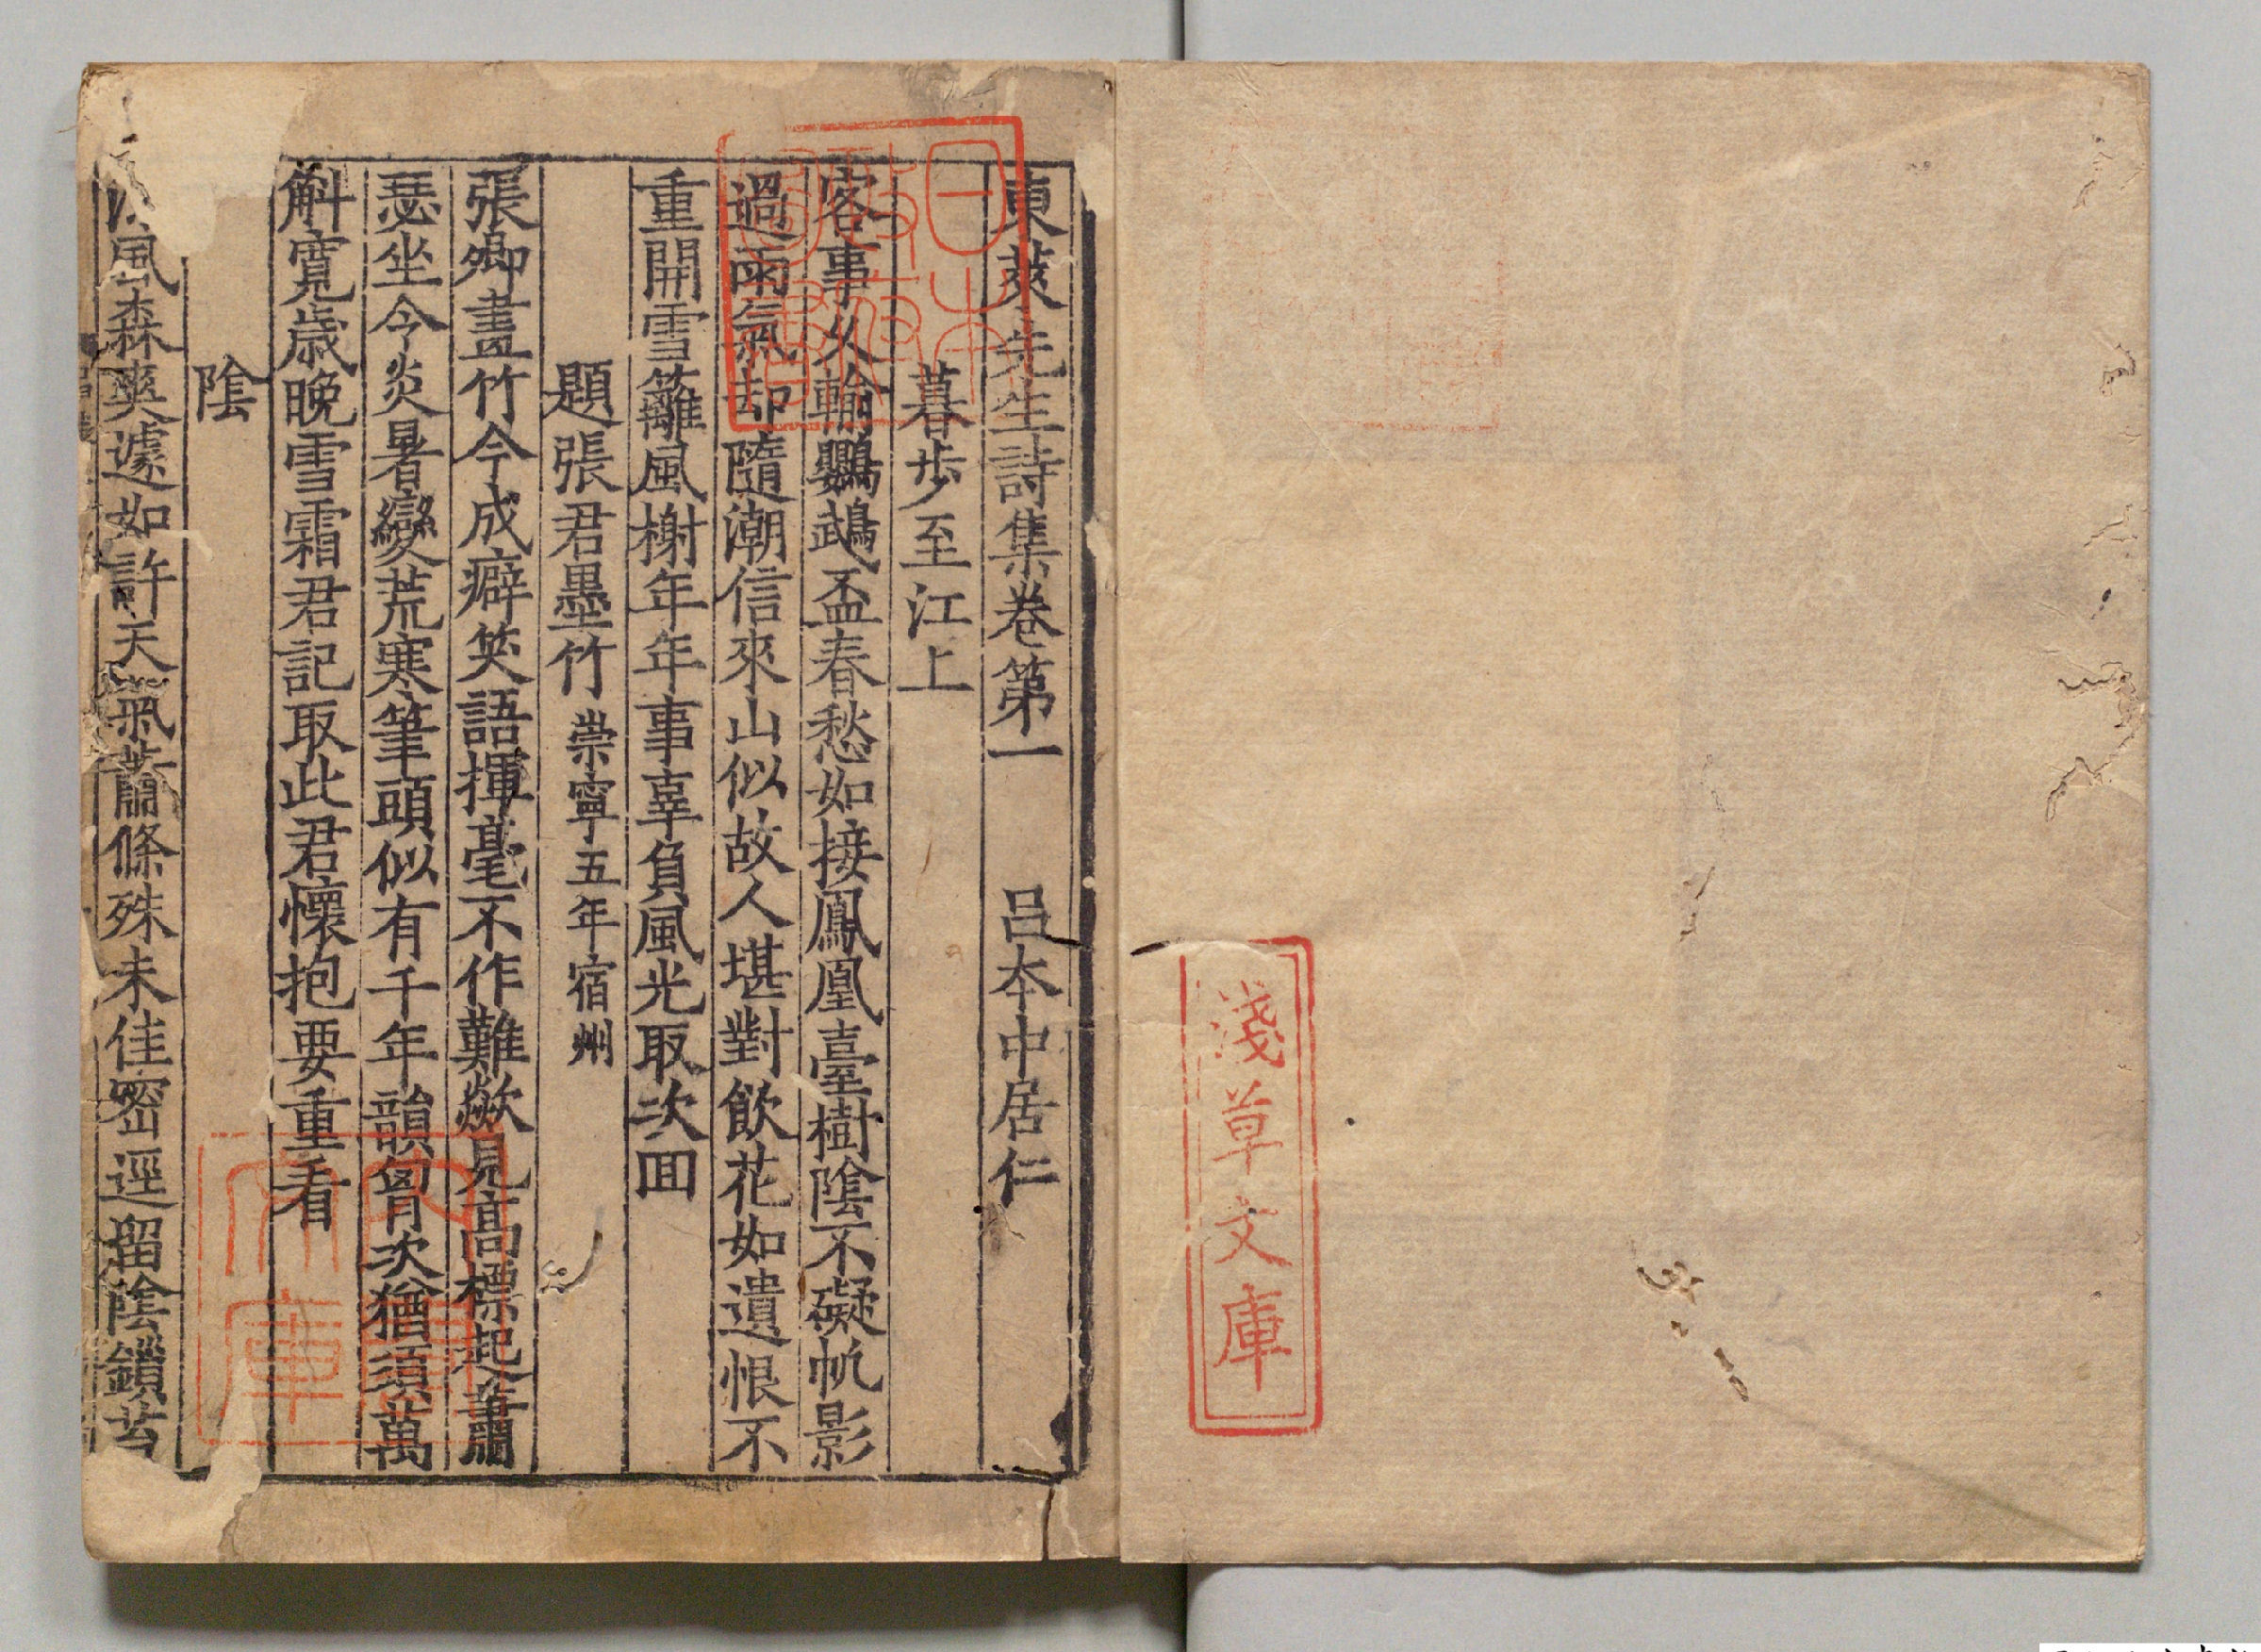 淺草文庫
東萊先生詩集卷第一 呂本中居仁
暮步至江上
客事久輸鸚鵡盃春愁如接鳳凰臺樹隂不礙帆影
過雨氣却隨潮信來山似故人堪對飲花如遺恨不
重開雪籬風榭年年事辜負風光取次囬
題張君墨竹 崇寧五年宿州
張卿畫竹今成癖笑語揮毫不作難歘見高標起蕭
瑟坐今炎暑變荒寒筆頭似有千年韻胷次猶須萬
斛寬歲晚雪霜君記取此君懷抱要重看
隂
風森爽遽如許天氣蕭條殊未佳密逕留隂鎖苔
日本政府圖書
内閣文庫